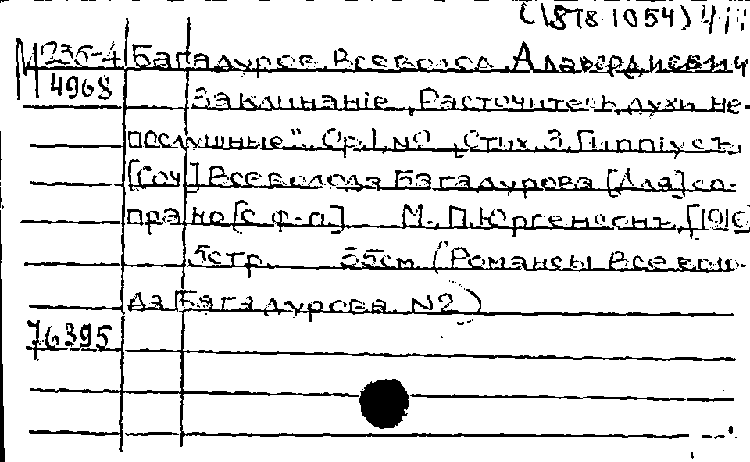 (1878-1954)
М 236-4 Багадуров, Всеволод Алавердиевич
4968 Заклинание „Расточитесь, духи не-
послушные". Ор. 1, №2 „Стих. З. Гиппіусъ.
[Соч.] Всеволода Багадурова [Для] со-
прано [с ф-п.] М., П. Юргенсонъ, [1910]
5 стр. 35 см. (Романсы Всеволо-
да Багадурова. №2)
76395